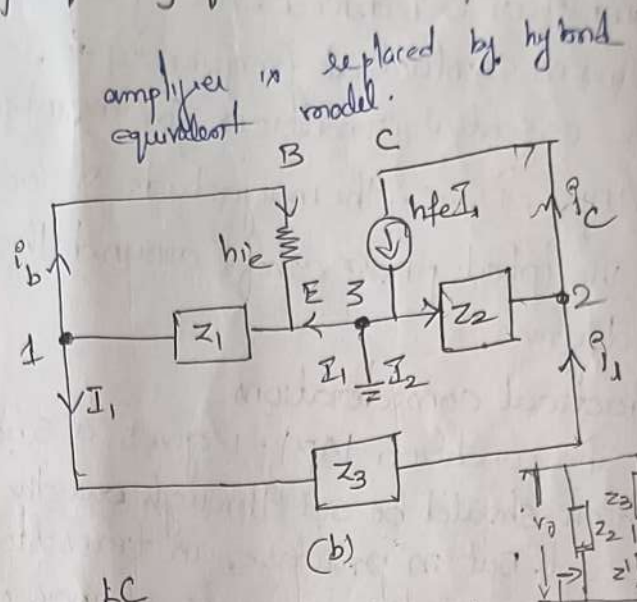 amplifier is replaced by hybrid
equivalent model.
B C
hie hfeI1 ic
ib
E 3 2
1 Z1 Z2
I1 I2 i1
I1
Z3
(b)
V0 Z2 Z3
Z'